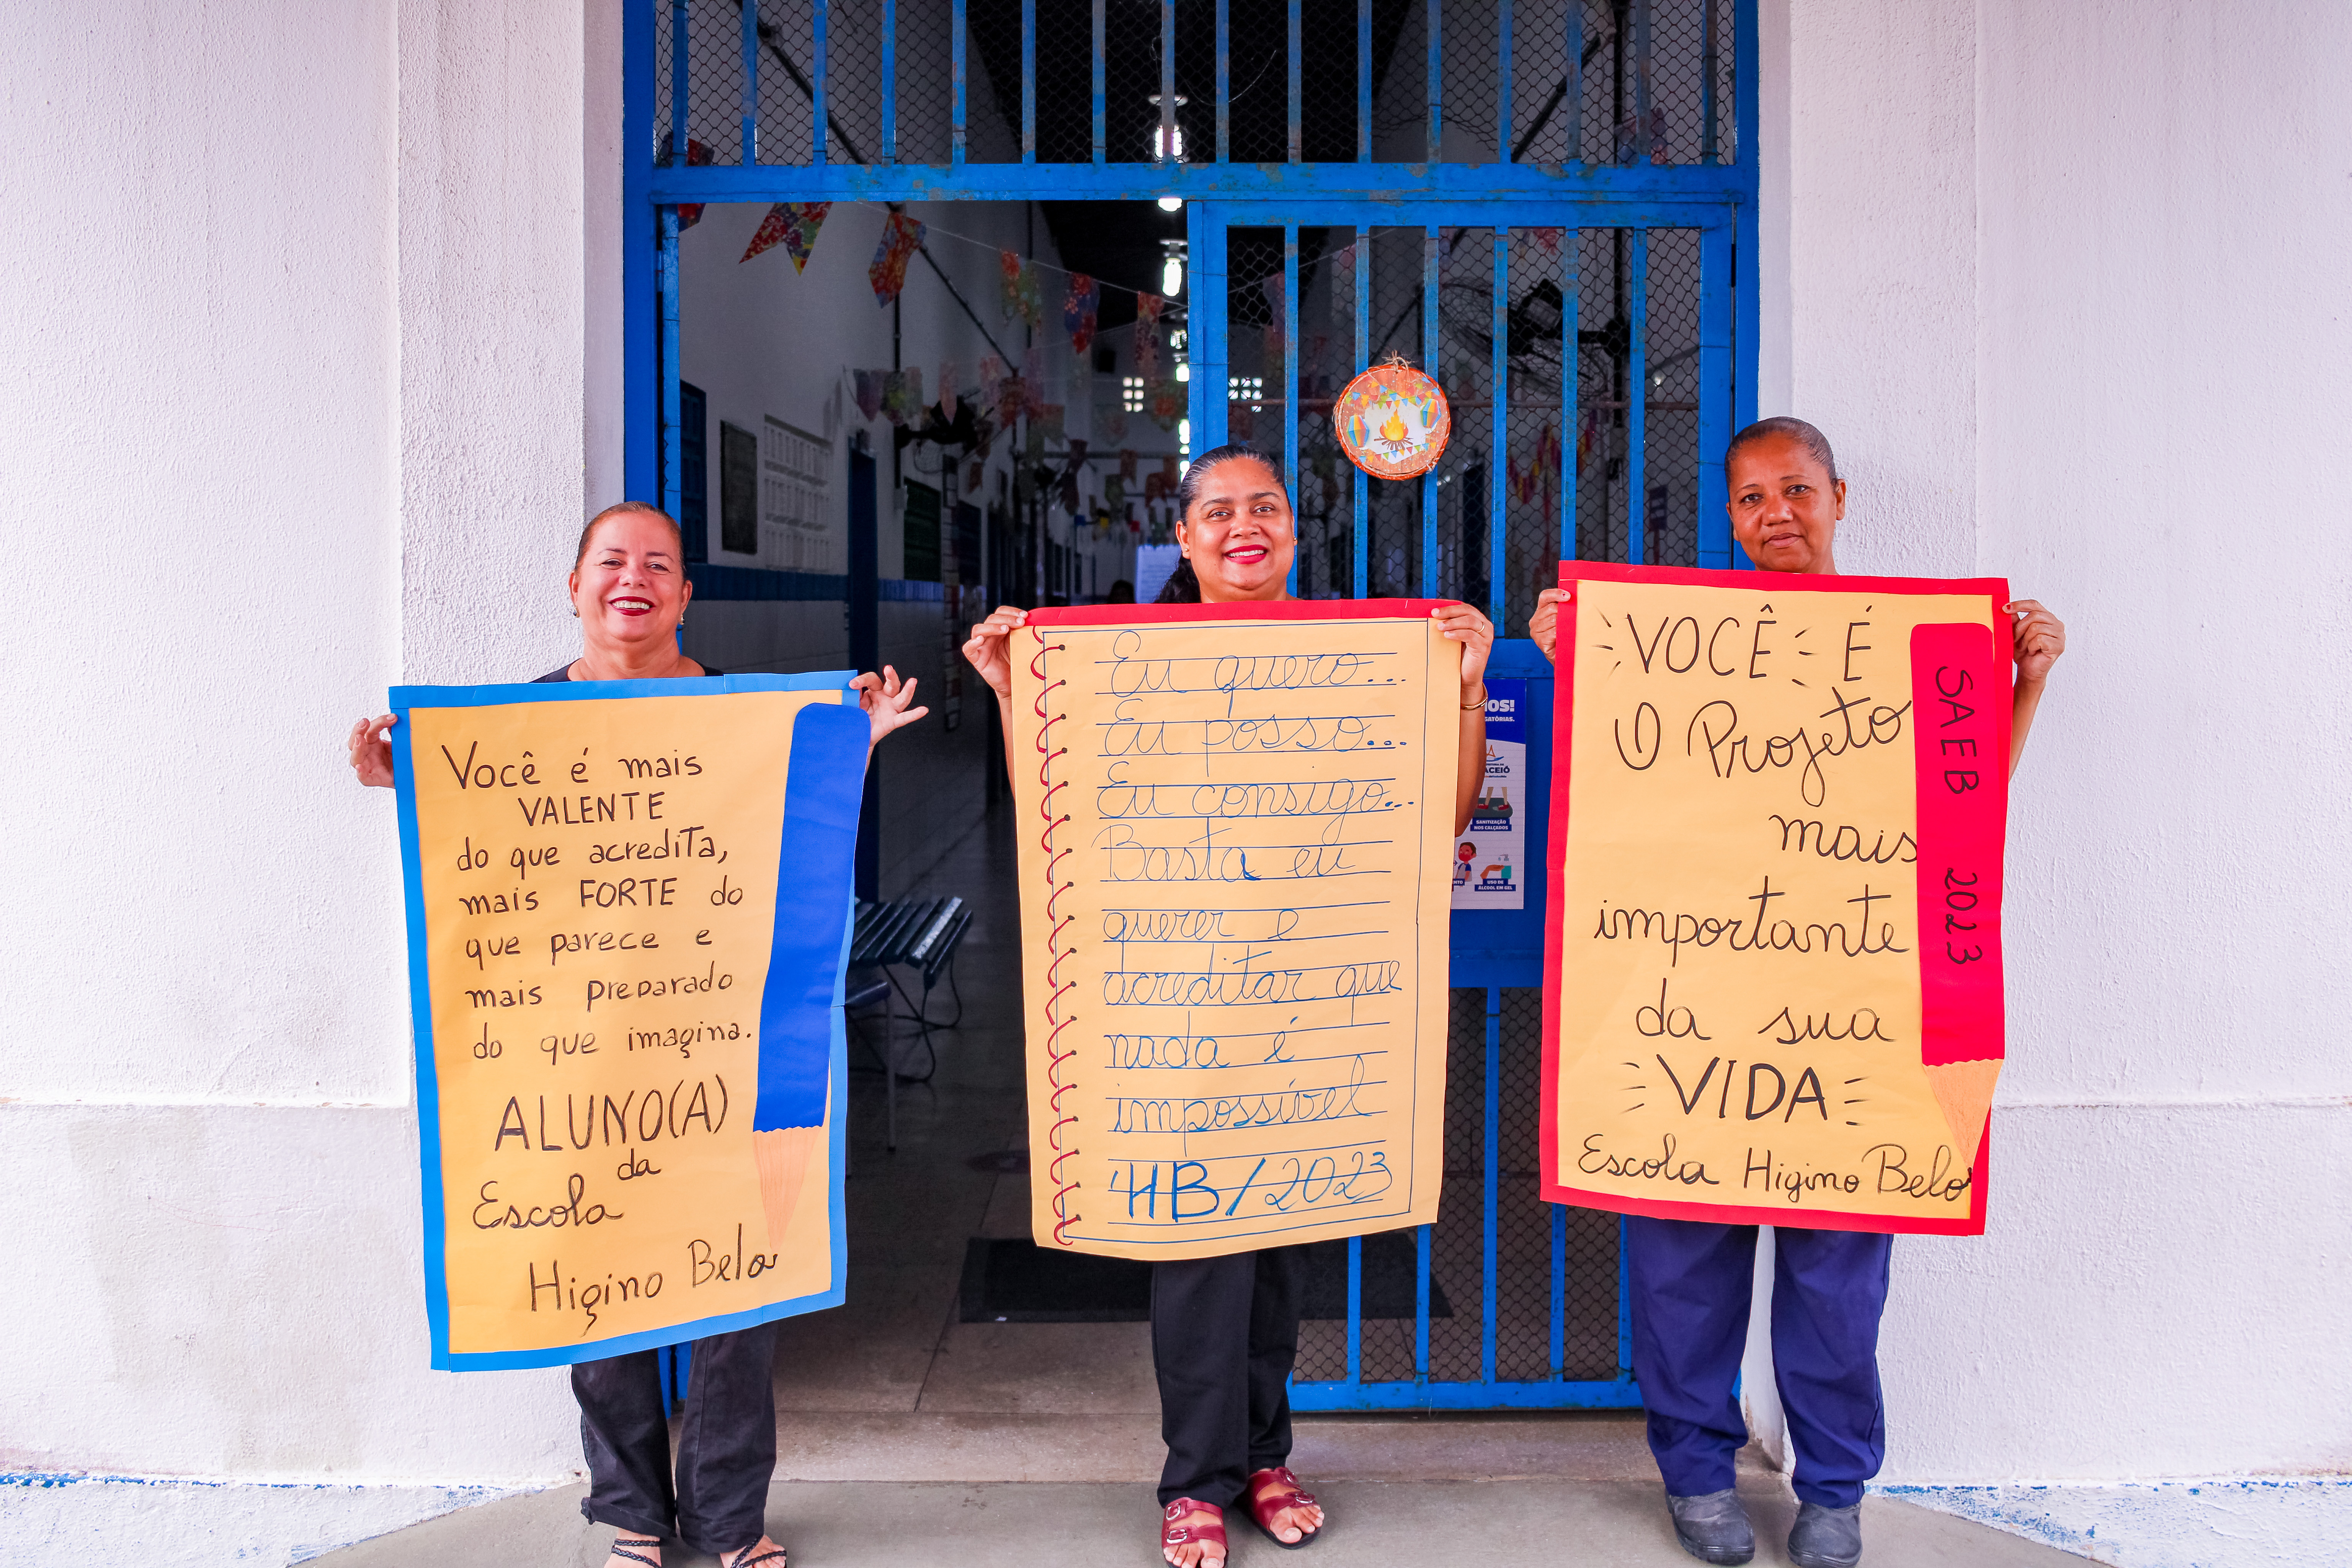 Você é mais
VALENTE
do que acredita,
mais FORTE do
que parece e
mais preparado
do que imagina.
ALUNO(A)
da
Escola
Higino Belo
Eu quero...
Eu posso...
Eu consigo...
Basta eu
querer e
acreditar que
nada é
impossível
HB/2023
VOCÊ É
O Projeto
mais
importante
da sua
VIDA
Escola Higino Belo
SAEB 2023
MOS!
GATÓRIAS.
ACEIÓ
SANITIZAÇÃO
NOS CALÇADOS
USO DE
ÁLCOOL EM GEL